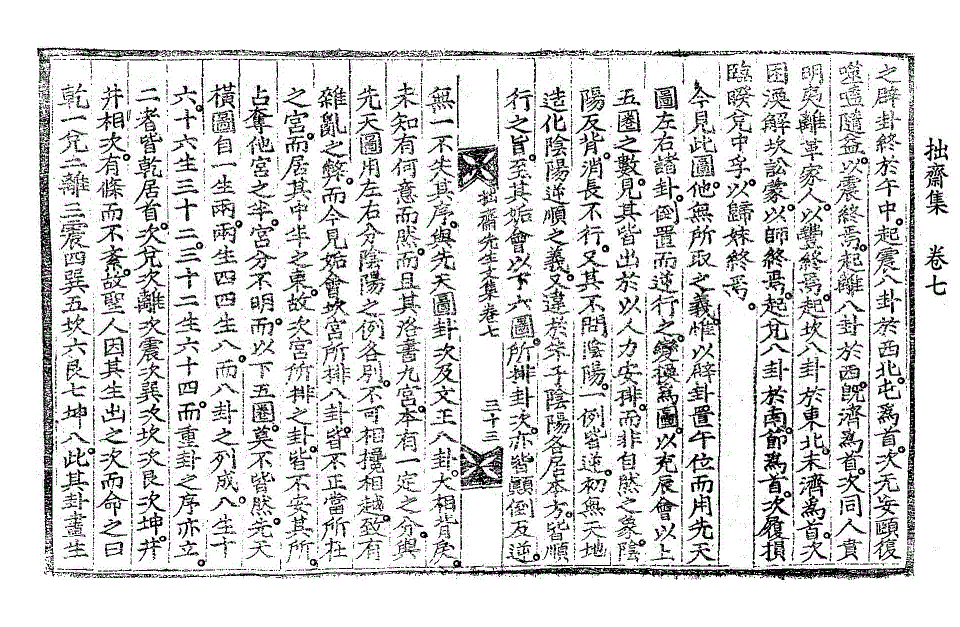 拙齋集　卷七
之辟卦終於午中起震八卦於西北屯爲首次无妄頤復
噬嗑隨益以震終焉起離八卦於西旣濟爲首次同人賁
明夷離革家人以豐終焉起坎八卦於東北未濟爲首次
困渙解坎訟蒙以師終焉起兌八卦於南節爲首次履損
臨睽兌中孚以歸妹終焉
今見此圖他無所取之義惟以辟卦置午位而用先天
圖左右諸卦倒置而逆行之變換爲圖以充辰會以上
五圈之數見其皆出於以人力安排而非自然之象陰
陽反背消長不行又其不問陰陽一例皆逆初無天地
造化陰陽逆順之義又違於朱子陰陽各居本方皆順
行之旨至其姤會以下六圖所排卦次亦皆顚倒反逆
拙齋先生文集卷七　三十三
無一不失其序與先天圖卦次及文王八卦大相背戾
未知有何意而然而且其洛書九宮本有一定之分與
先天圖用左右分陰陽之例各別不可相攙相越致有
雜亂之弊而今見姤會坎宮所排八卦皆不正當所在
之宮而居其中半之東故次宮所排之卦皆不安其所
占奪他宮之半宮分不明而以下五圈莫不皆然先天
橫圖自一生兩兩生四四生八而八卦之列成八生十
六十六生三十二三十二生六十四而重卦之序亦立
二者皆乾居首次兌次離次震次巽次坎次艮次坤井
井相次有條而不紊故聖人因其生出之次而命之曰
乾一兌二離三震四巽五坎六艮七坤八此其卦畫生